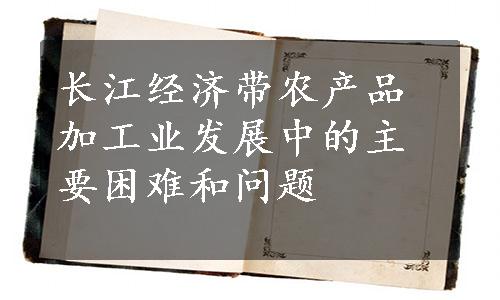 长江经济带农产品
加工业发展中的主
要困难和问题